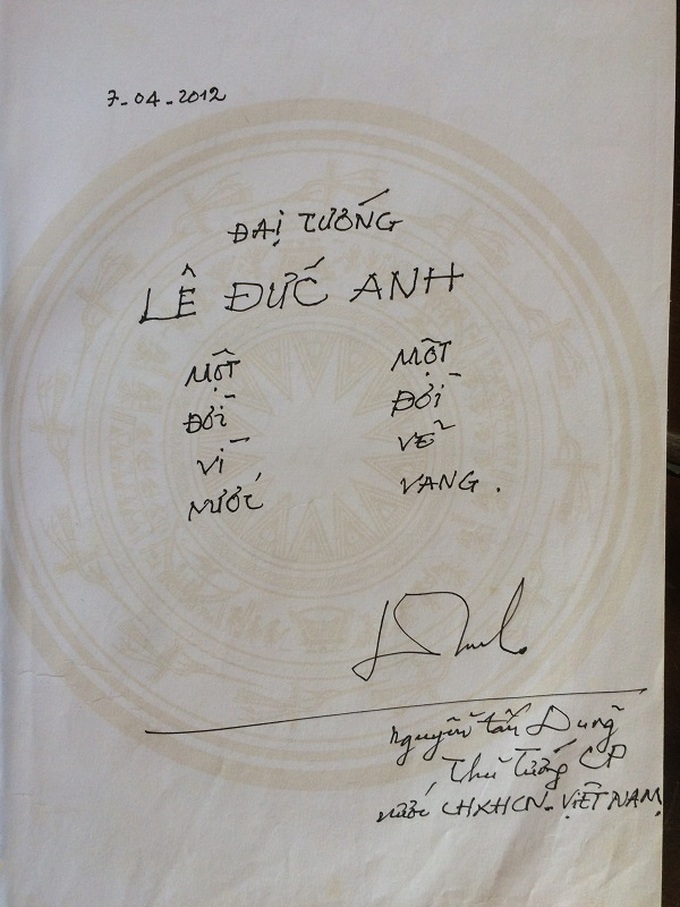 7-04-2012
ĐẠI TƯỚNG
LÊ ĐỨC ANH
MỘT
ĐỜI
VÌ
NƯỚC
MỘT
ĐỜI
VẼ
VANG.
Nguyễn Tấn Dũng
Thủ Tướng CP
nước CHXHCN-VIỆT NAM